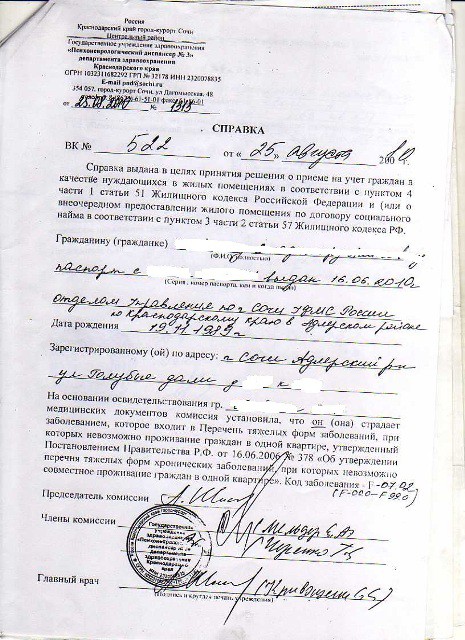 Россия
Краснодарский край город-курорт Сочи
Центральный район
Государственное учреждение здравоохранения
«Психоневрологический диспансер № 3»
департамента здравоохранения
Краснодарского края
ОГРН 1032311682292 ГРП № 32178 ИНН 2320078835
E-mail pnd@sochi.ru
354 057, город-курорт Сочи, ул Дагомысская, 48
61-51-01 факс 61-56-01
от 25.08.2010 № 1313
СПРАВКА
ВК № 522 от « 25 » августа 2010
Справка выдана в целях принятия решения о приеме на учет граждан в
качестве нуждающихся в жилых помещениях в соответствии с пунктом 4
части 1 статьи 51 Жилищного кодекса Российской Федерации и (или о
внеочередном предоставлении жилого помещения по договору социального
найма в соответствии с пунктом 3 части 2 статьи 57 Жилищного кодекса РФ.
Гражданину (гражданке)
(Ф.И.О. полностью)
паспорт с выдан 16.06.2010
(Серия , номер паспорта, кем и когда выдан)
отделом Управление по г Сочи УФМС России
по Краснодарскому краю в Адлерском районе
Дата рождения 19.11.1989 г
Зарегистрированному (ой) по адресу: г Сочи Адлерский р-н
ул. Голубые дали д к
На основании освидетельствования гр.
медицинских документов комиссия установила, что он (она) страдает
заболеванием, которое входит в Перечень тяжелых форм заболеваний, при
которых невозможно проживание граждан в одной квартире, утвержденный
Постановлением Нравительства Р.Ф. от 16.06.2006 № 378 «Об утверждении
перечня тяжелых форм хронических заболеваний, при которых невозможно
совместное проживание граждан в одной квартире». Код заболевания - F-07.02
(F-000-F990)
Председатель комиссии
Члены комиссии
Государственное
учреждение
здравоохранения
«Психоневрологический
диспансер № 3»
департамента
здравоохранения
Краснодарского
края
Главный врач
(подпись и круглая печать учреждения)